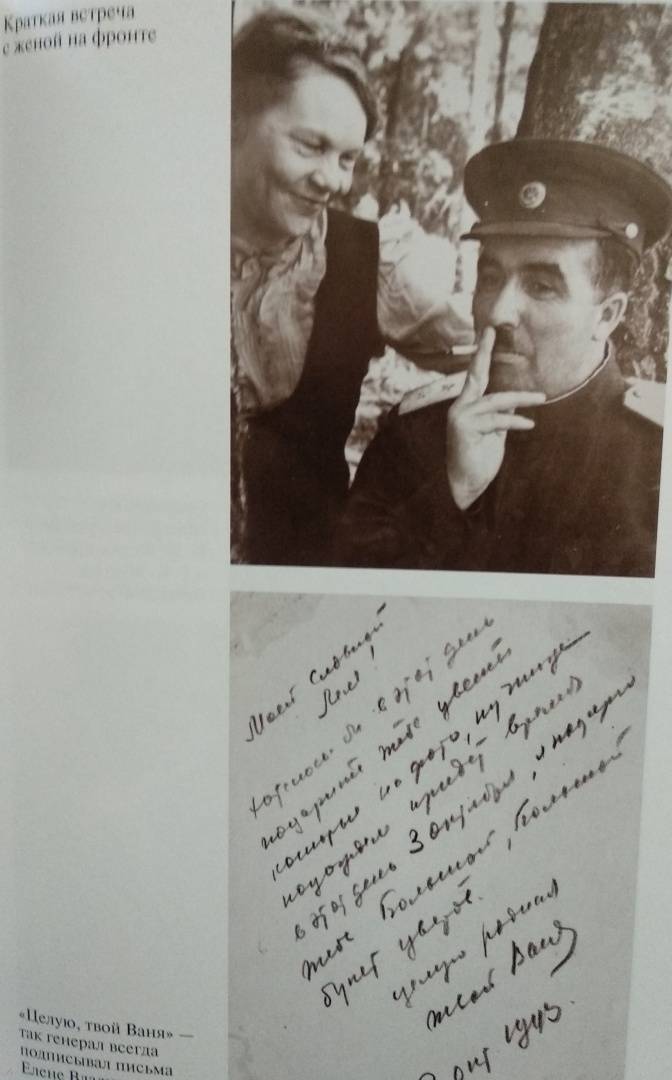 Краткая встреча
с женой на фронте
Моей славной
Леле!
Хотелось бы в этот день
подарить тебе цветы
которые на фото, ну что же
подождем придёт время
в этот день 3 октября, я подарю
тебе большой, большой
букет цветов.
целую родная
твой Ваня
окт 1943.
«Целую, твой Ваня» —
так генерал всегда
подписывал письма
Елене